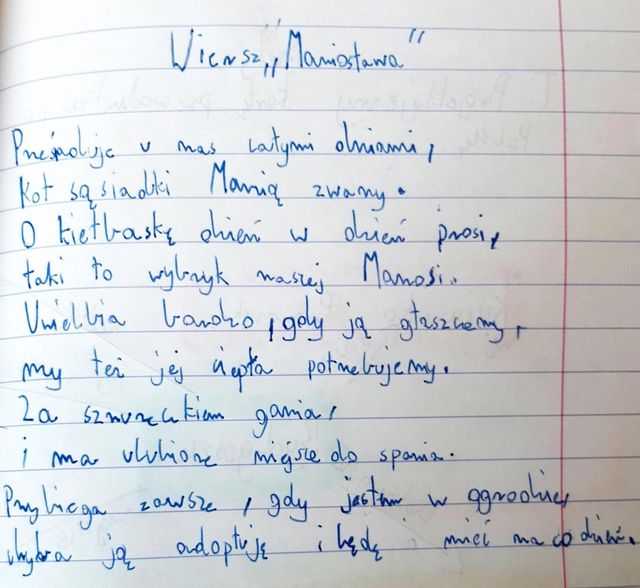 Wiersz „Maniostawa"
Przesiaduje u nas całymi dniami,
Kot sąsiadki Manią zwany.
O kiełbaskę dzień w dzień prosi,
taki to wybryk naszej Manosi.
Uwielbia bardzo, gdy ją głaszczemy,
my też jej ciepła potrzebujemy.
Za sznureczkiem gania,
i ma ulubione miejsce do spania.
Przybiega zawsze, gdy jestem w ogrodzie,
chyba ją adoptuję i będę mieć na co dzień.